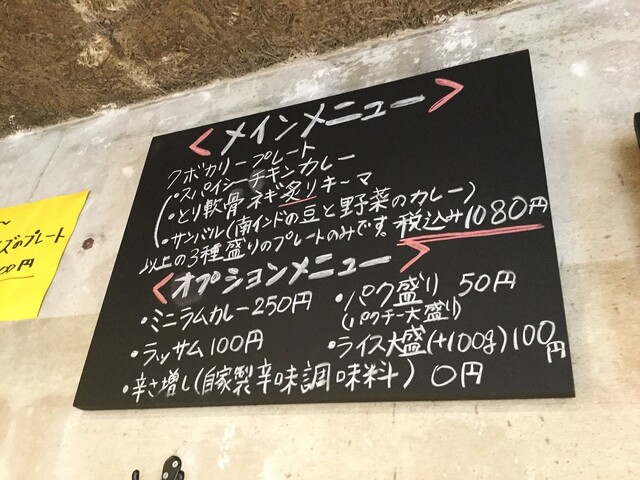 <メインメニュー>
クボカリープレート
・スパイシーチキンカレー
・とり軟骨ネギ炙りキーマ
・サンバル(南インドの豆と野菜のカレー)
以上の3種盛りのプレートのみです。税込み1080円
<オプションメニュー>
・ミニラムカレー250円
・ラッサム100円
・パク盛り 50円
(パクチー大盛り)
・ライス大盛(+100g)100円
・辛さ増し(自家製辛味調味料) 0円
〜
ズのプレート
00円